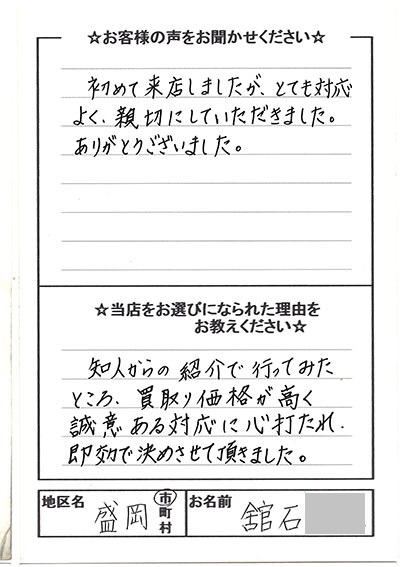 ☆お客様の声をお聞かせください☆
初めて来店しましたが、とても対応
よく、親切にしていただきました。
ありがとうございました。
☆当店をお選びになられた理由を
お教えください☆
知人からの紹介で行ってみた
ところ、買取り価格が高く
誠意ある対応に心打たれ、
即効で決めさせて頂きました。
地区名 盛岡 市町村 お名前 舘石